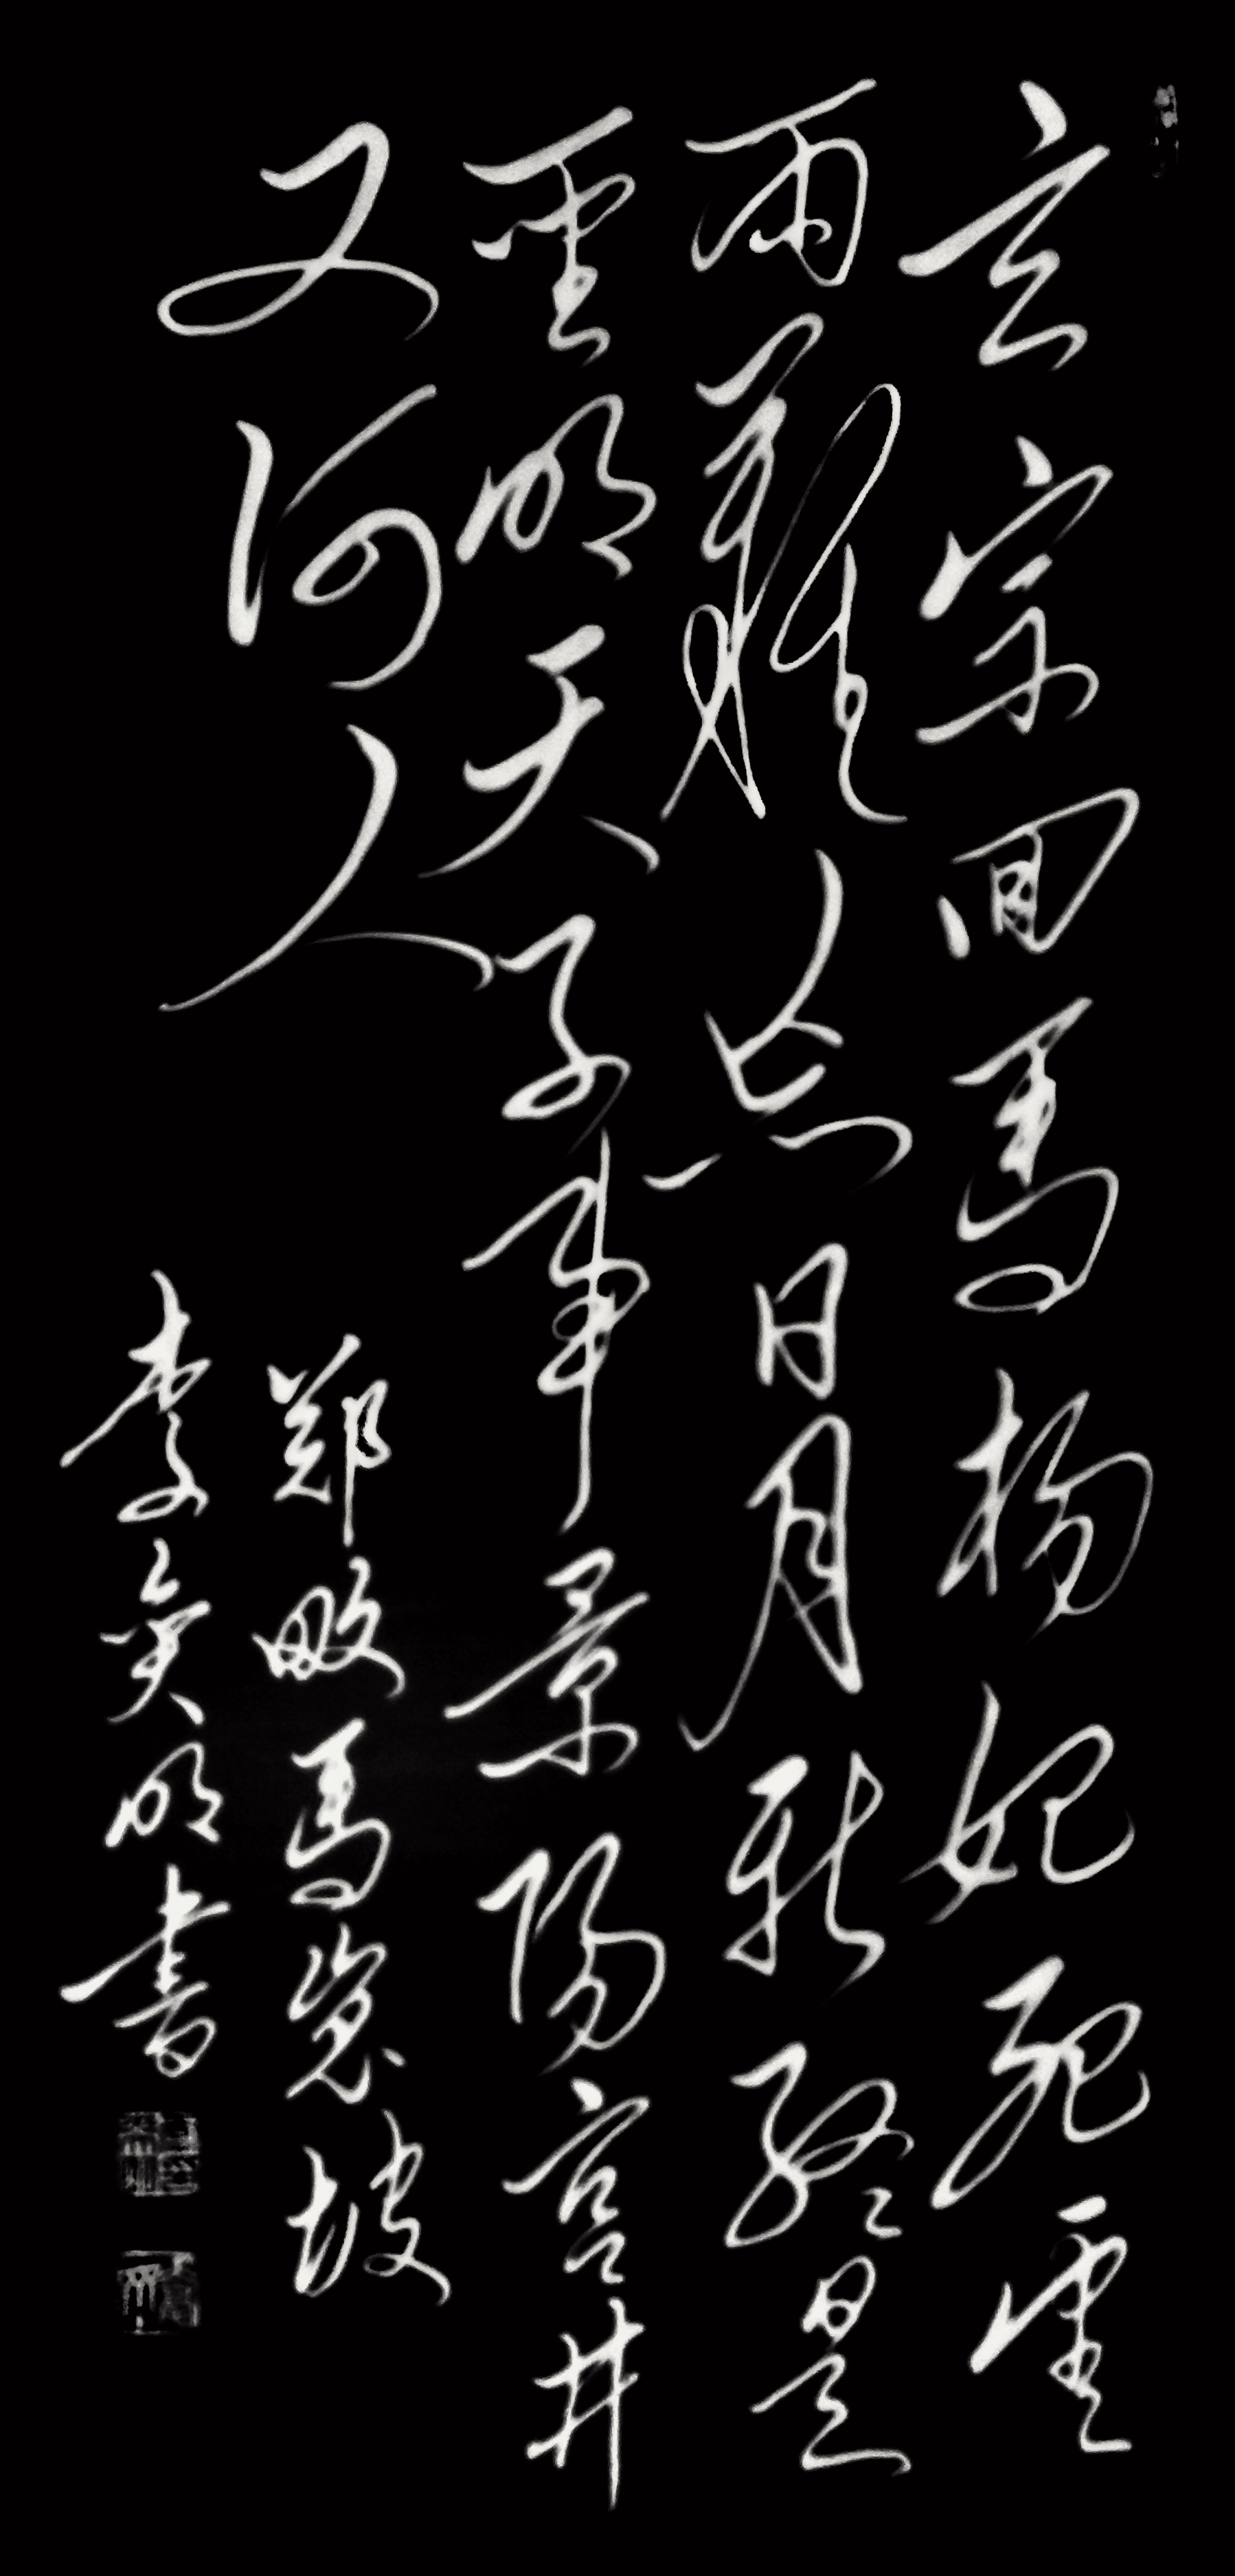 玄宗回馬楊妃死雲
雨難忘日月新終是
聖明天子事景陽宫井
又何人
郑畋馬嵬坡
李奂明書